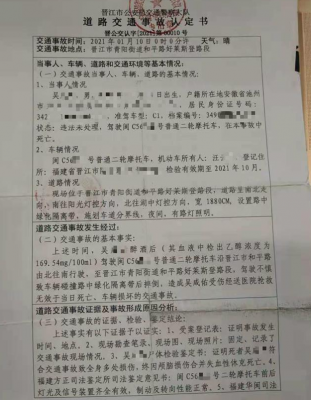 晋江市公安局交通警察大队
道路交通事故认定书
晋公交认字[2021]第00010号
交通事故时间：2021年01月10日0时0分许 天气：晴
交通事故地点：晋江市青阳街道和平路好莱斯登路段
当事人、车辆、道路和交通环境等基本情况：
（一）交通事故当事人、车辆、道路的基本情况：
1、当事人情况
日出生，户籍所在地安徽省池州
居民身份证号码：
342
准驾车型：C1，档案编号：340
状态：违法未处理，驾驶闽C56 号普通二轮摩托车，在本事故中
死亡。
2、车辆情况
闽C56 号普通二轮摩托车，机动车所有人： 登记住
所：福建省晋江市 检验有效期至2021年10月。
3、道路情况
现场位于晋江市青阳街道和平路好莱斯登路段，道路呈南北走
向，南往阳光灯控方向，北往 灯控方向，宽1880CM，设置路中
绿化隔离带，施划车道分界线，夜间，有路灯照明。
道路交通事故发生经过：
（二）交通事故的基本事实：
上述时间，吴 醉酒后（吴血液中检出乙醇浓度为
169.54mg/100ml）驾驶闽C56 号普通二轮摩托车沿晋江市和平路
由北往南行驶，至晋江市青阳街道和平路好莱斯登路段，驾驶不慎
致车辆碰撞路中绿化隔离带后摔倒，造成吴 受伤经送医院抢救
无效于当日死亡、车辆损坏的交通事故。
道路交通事故证据及事故形成原因分析：
（三）交通事故的证据、检验、鉴定结论：
上述事实有以下证据予以证实：1、受案登记表：证明事故发生
时间、地点。2、现场勘查笔录、现场图、现场照片：固定、记录了
交通事故现场情况。3、吴 尸体检验鉴定书：证明死者吴 符
合交通事故致全身多处损伤，终因颅脑损伤合并失血性休克死亡。4、
福建方正司法鉴定所司法鉴定意见书：闽C56 号二轮摩托车前后
灯光及信号装置齐全有效，制动及转向性能正常。5、福建华闽司法